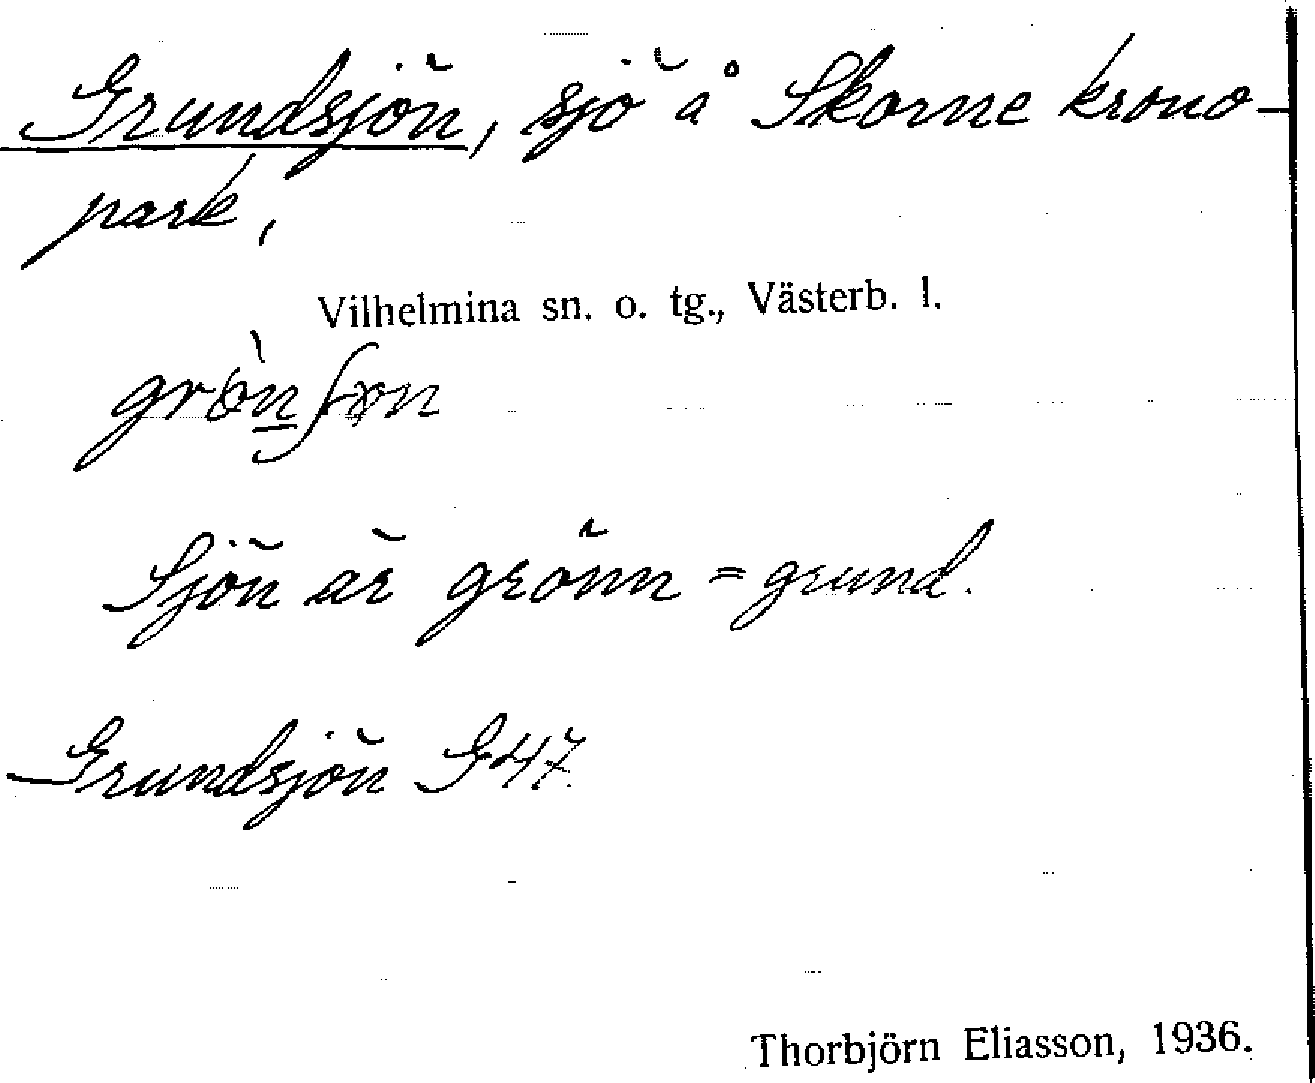 Grundsjön, sjö å Skorne krono-
park,
Vilhelmina sn. o. tg., Västerb. l.
Sjön är grönn = grund.
Grundsjön G47
Thorbjörn Eliasson, 1936.